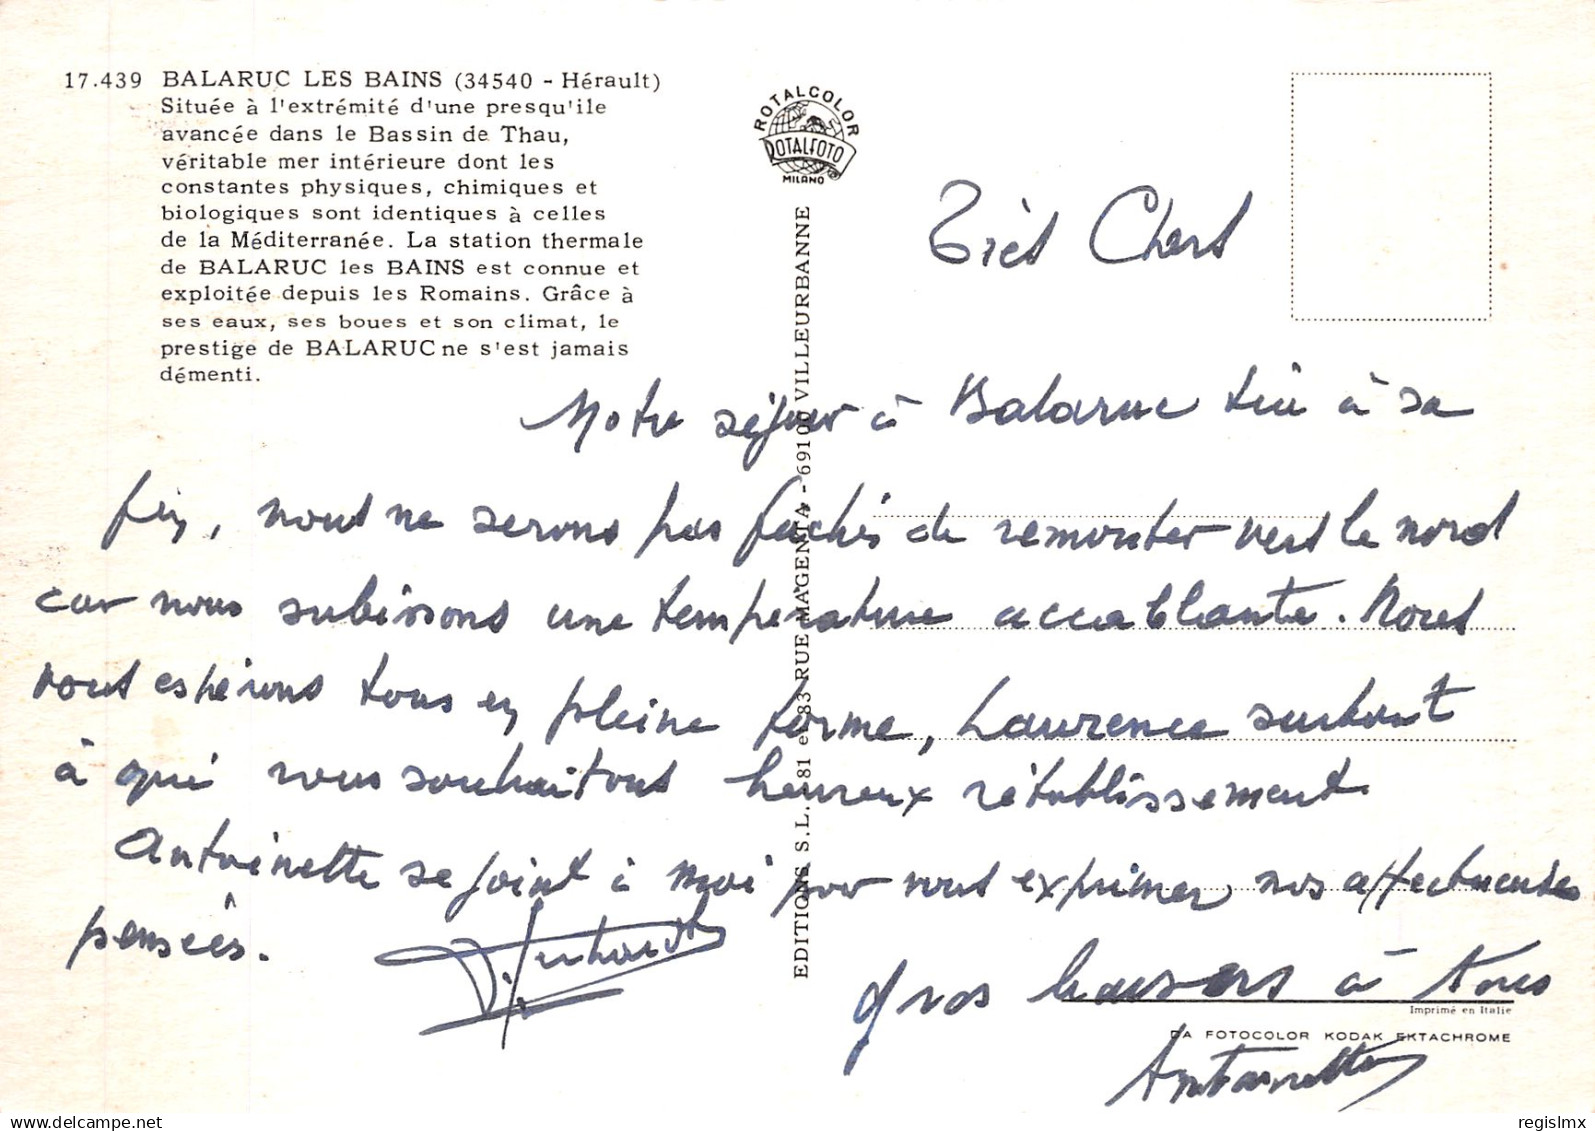 17.439 BALARUC LES BAINS (34540 - Hérault)
Située à l'extrémité d'une presqu'ile
avancée dans le Bassin de Thau,
véritable mer intérieure dont les
constantes physiques, chimiques et
biologiques sont identiques à celles
de la Méditerranée. La station thermale
de BALARUC les BAINS est connue et
exploitée depuis les Romains. Grâce à
ses eaux, ses boues et son climat, le
prestige de BALARUC ne s'est jamais
démenti.
ROTALCOLOR
ROTALFOTO
MILANO
EDITIONS S.L. - 81 et 83 RUE MAGENTA - 69100 VILLEURBANNE
Très Chers
Notre séjour à Balaruc tire à sa
fin, nous ne serons pas fachés de remonter vers le nord
car nous subissons une température accablante. Nous
vous espérons tous en pleine forme, Laurence surtout
à qui nous souhaitons heureux rétablissement
Antoinette se joint à moi pour vous exprimer nos affectueuses
pensées.
Gros baisers à tous
Antoinette
Imprimé en Italie
DA FOTOCOLOR KODAK EKTACHROME
delcampe.net
regislmx